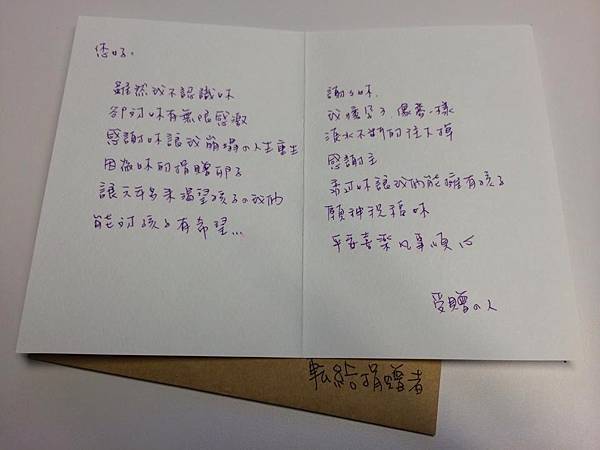 您好。
雖然我不認識妳
卻對妳有無限感激
感謝妳讓我崩塌の人生重生
因為妳的捐贈卵子
讓六年多来渴望孩子の我們
能對孩子有希望...
謝々妳.
我懷孕了 像夢一樣
淚水不斷的往下掉
感謝主
透過妳讓我們能擁有孩子
願神祝福妳
平安喜樂凡事順心
受贈の人
転給捐贈者